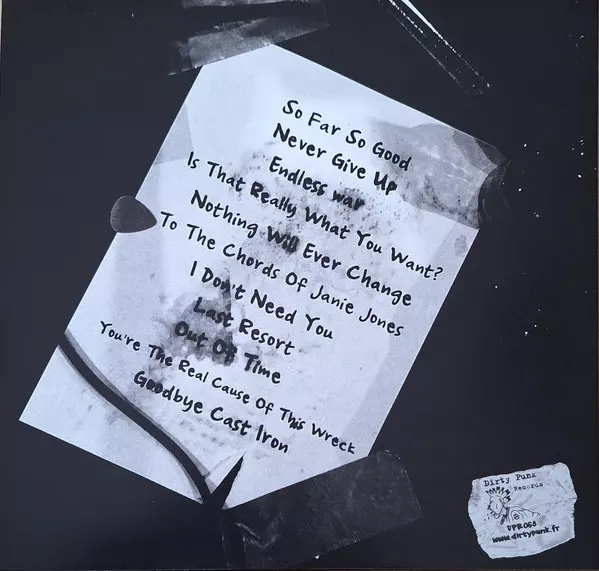 So Far So Good
Never Give Up
Endless war
Is That Really What You Want?
Nothing Will Ever Change
To The Chords Of Janie Jones
I Don't Need You
Last Resort
Out Of Time
You're The Real Cause Of This Wreck
Goodbye Cast Iron
Dirty Punk
Records
DPR068
www.dirtypunk.fr